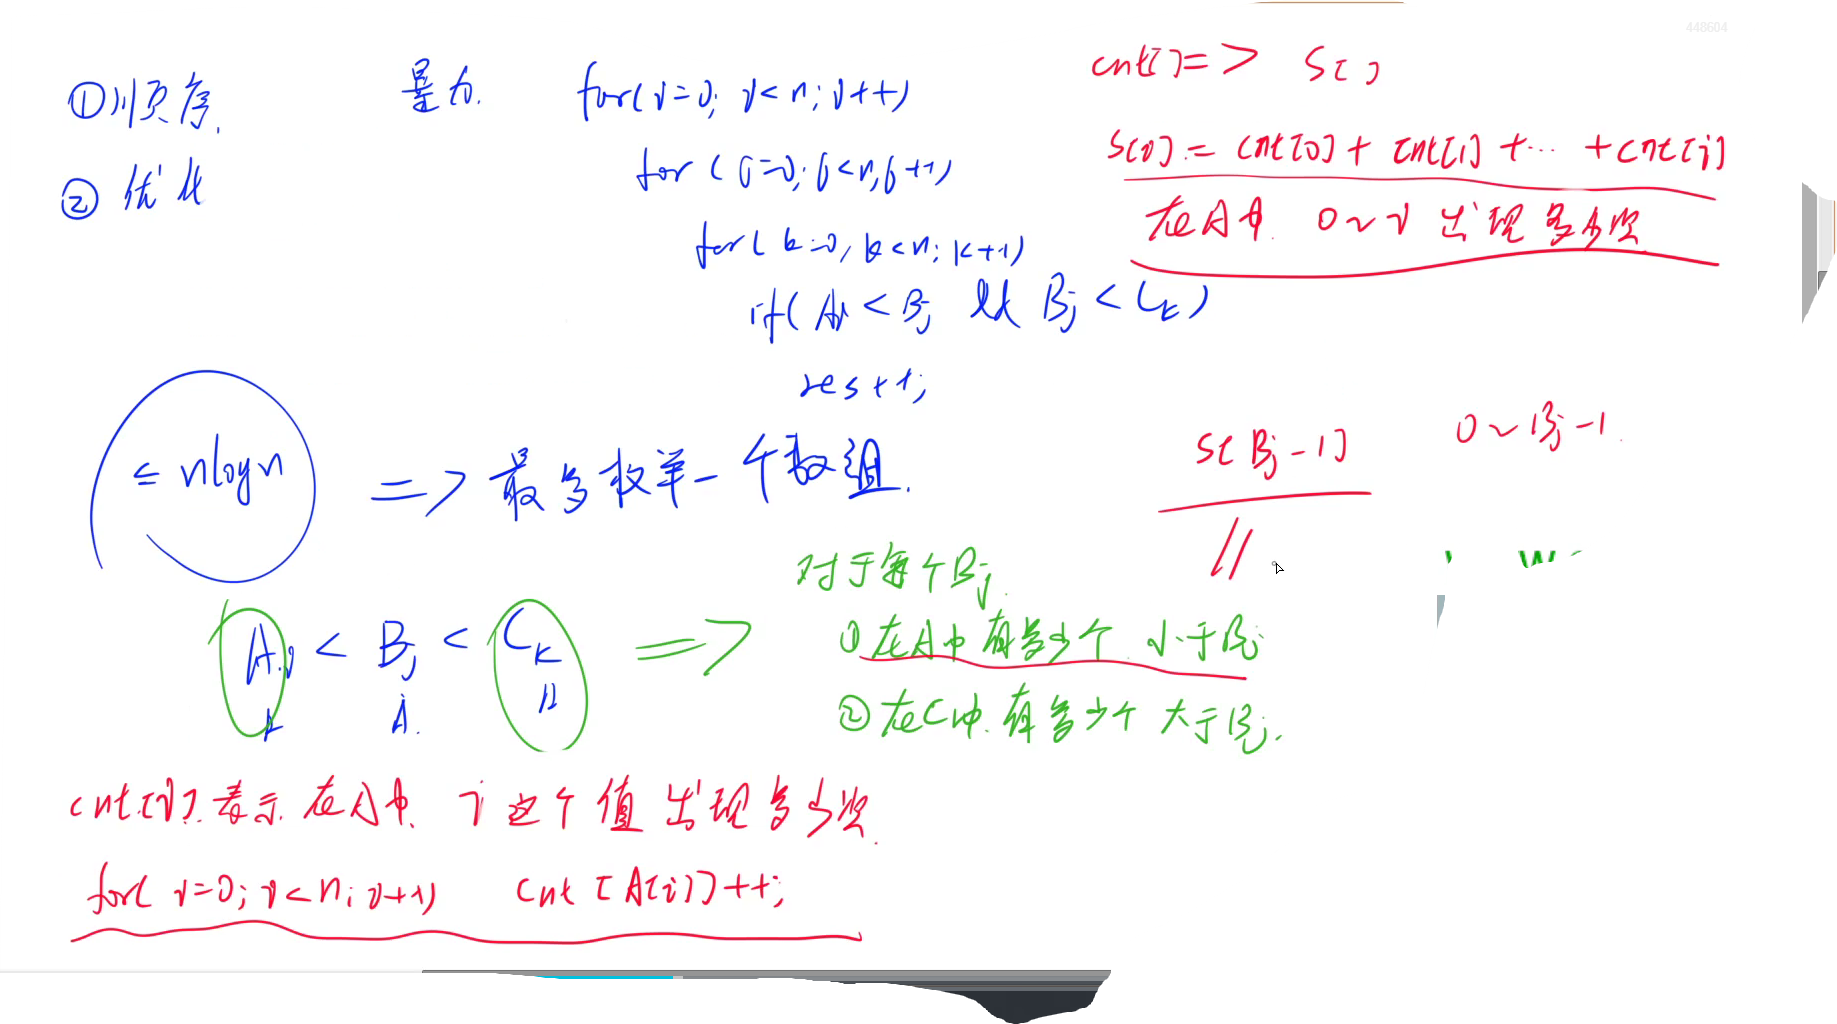 ①顺序.
② 优化
暴力.
for(i=0; i<n; i++)
for(j=0; j<n; j++)
for(k=0; k<n; k++)
if(Ai < Bj && Bj < Ck)
res++;
cnt[] => S[]
S[i] = cnt[0] + cnt[1] + ... + cnt[i]
在A中. 0~i 出现多少次
≤ nlogn => 最多枚举一个数组.
S[Bj-1] 0~Bj-1
对于每个Bj.
Ai < Bj < Ck =>
①在A中有多少个 小于Bj
②在C中.有多少个 大于Bj.
cnt[i].表示.在A中. i 这个值 出现多少次.
for(i=0; i<n; i++) cnt[A[i]]++;
448604